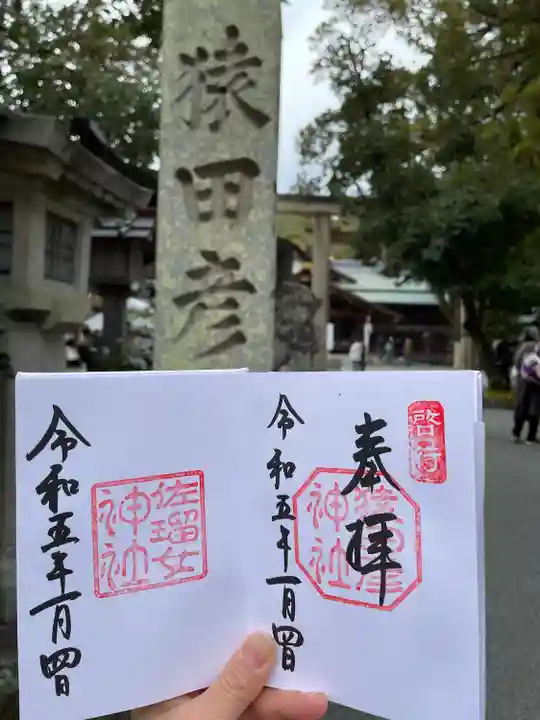 猿田彦
啓行
奉拝
猿田彦
神社
令和五年一月四日
佐瑠女
神社
令和五年一月四日